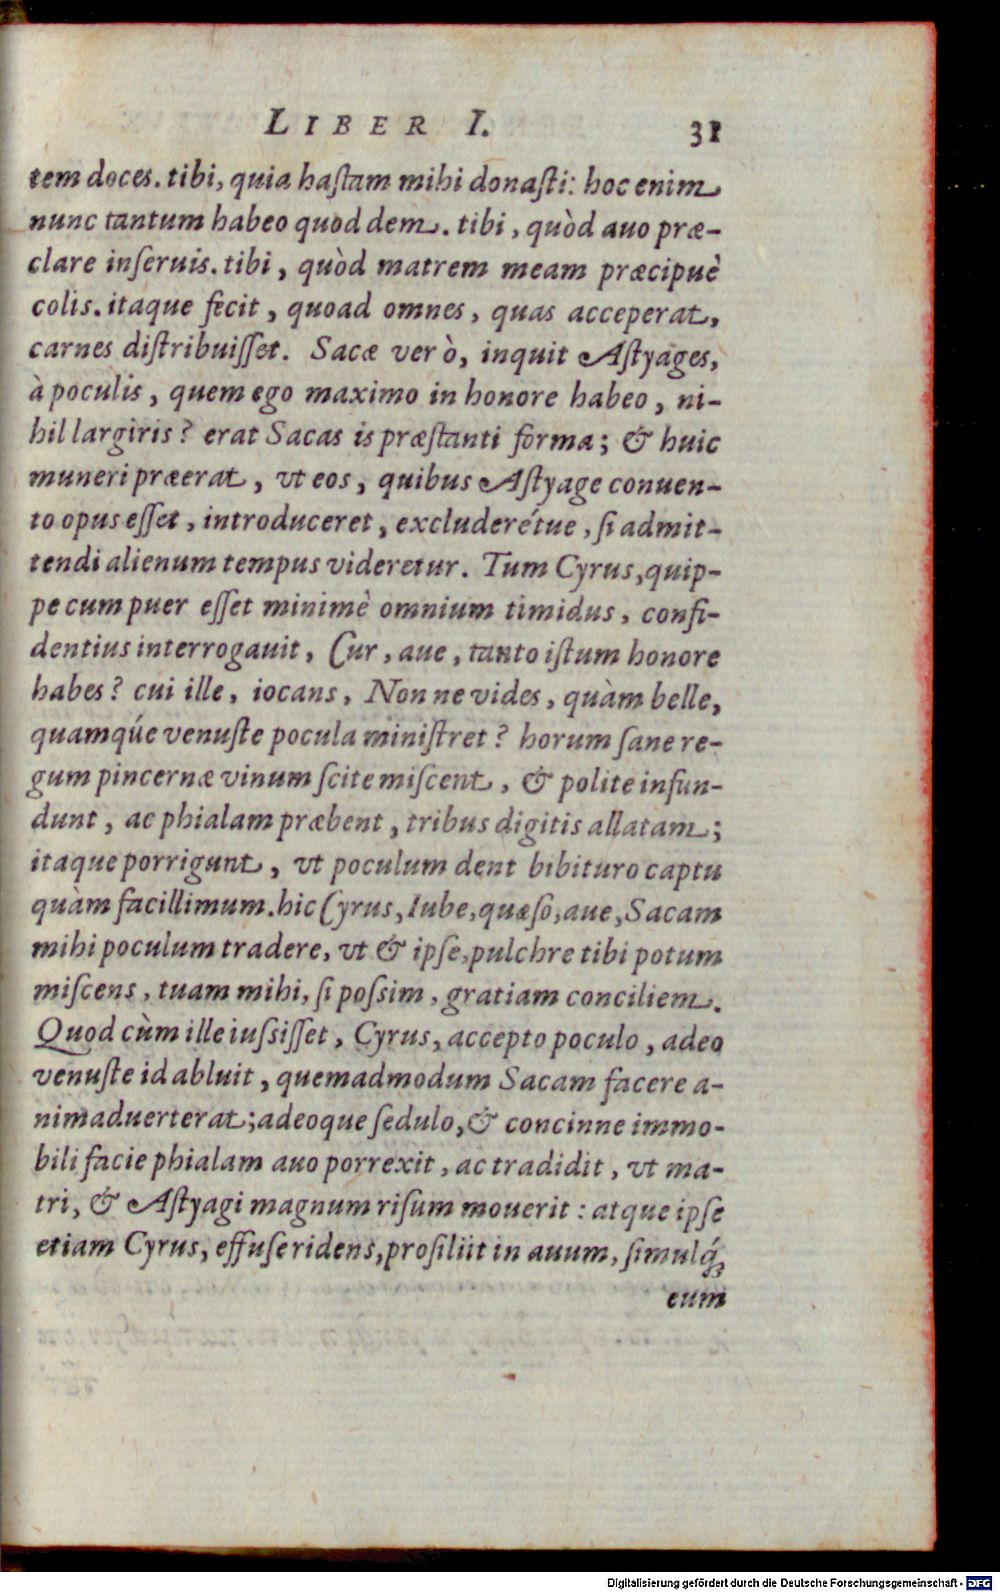 LIBER I. 31
tem doces. tibi, quia haſtam mihi donaſti: hoc enim
nunc tantum habeo quod dem. tibi, quòd auo præ-
clare inſeruis. tibi, quòd matrem meam præcipuè
colis. itaque fecit, quoad omnes, quas acceperat,
carnes diſtribuiſſet. Sacæ verò, inquit Aſtyages,
à poculis, quem ego maximo in honore habeo, ni-
hil largiris? erat Sacas is præſtanti forma; & huic
muneri præerat, vt eos, quibus Aſtyage conuen-
to opus eſſet, introduceret, excluderétue, ſi admit-
tendi alienum tempus videretur. Tum Cyrus, quip-
pe cum puer eſſet minimè omnium timidus, confi-
dentius interrogauit, Cur, aue, tanto iſtum honore
habes? cui ille, iocans, Non ne vides, quàm belle,
quamqúe venuſte pocula miniſtret? horum ſane re-
gum pincernæ vinum ſcite miſcent, & polite infun-
dunt, ac phialam præbent, tribus digitis allatam;
itaque porrigunt, vt poculum dent bibituro captu
quàm facillimum. hic Cyrus, Iube, quæſo, aue, Sacam
mihi poculum tradere, vt & ipſe, pulchre tibi potum
miſcens, tuam mihi, ſi poſsim, gratiam conciliem.
Quod cùm ille iuſsiſſet, Cyrus, accepto poculo, adeo
venuſte id abluit, quemadmodum Sacam facere a-
nimaduerterat; adeoque ſedulo, & concinne immo-
bili facie phialam auo porrexit, ac tradidit, vt ma-
tri, & Aſtyagi magnum riſum mouerit: atque ipſe
etiam Cyrus, effuſe ridens, proſiliit in auum, ſimulq́;
eum
Digitalisierung gefördert durch die Deutsche Forschungsgemeinschaft - DFG